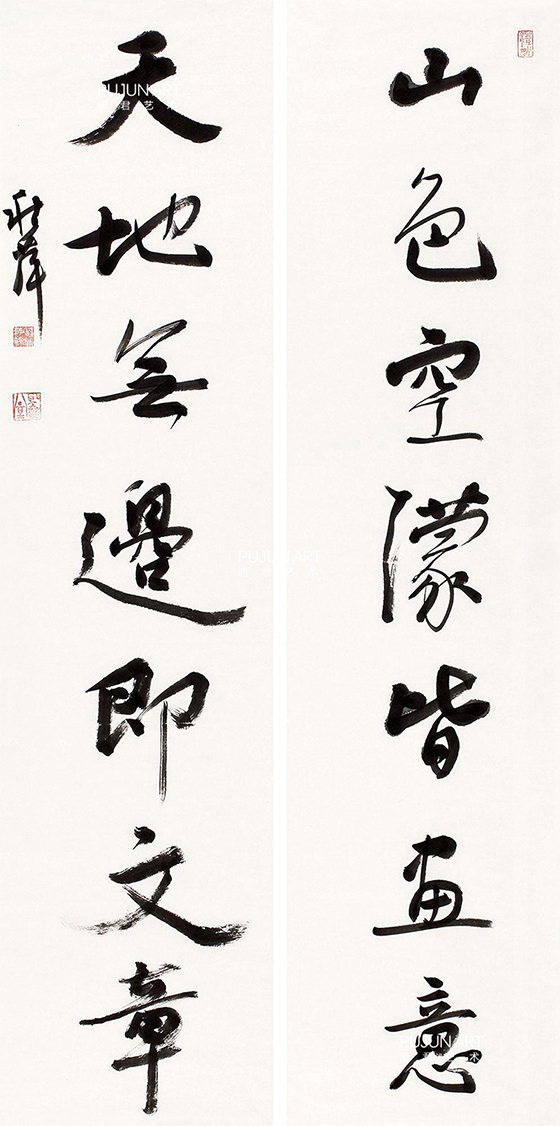 山色空濛皆畫意
天地無邊即文章
PUJUN ART
PUJUN ART
PUJUN ART